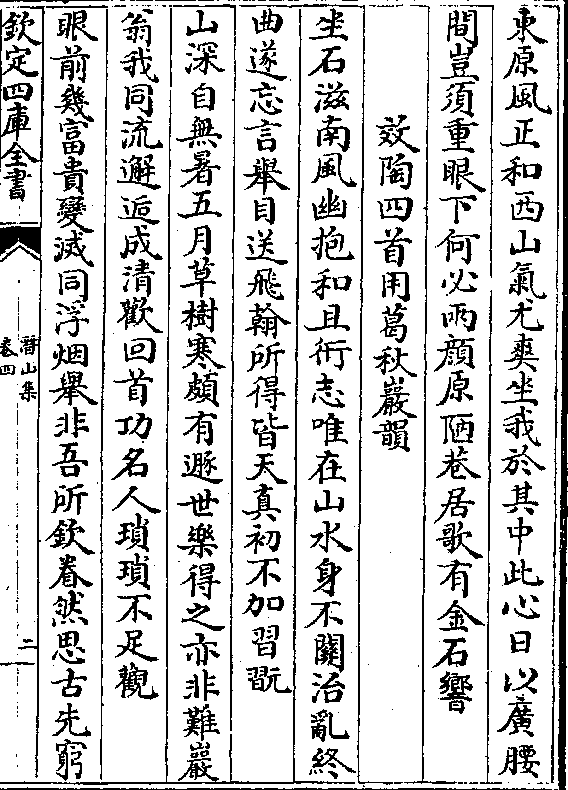 東原風正和西山氣尤爽坐我於其中此心日以廣腰
間豈須重眼下何必兩顔原陋巷居歌有金石響
效陶四首用葛秋巖韻
坐石滋南風幽抱和且衎志唯在山水身不關治亂終
曲遂忘言舉目送飛翰所得皆天真初不加習翫
山深自無暑五月草樹寒頗有遯世樂得之亦非難巖
翁我同流邂逅成清歡回首功名人瑣瑣不足觀
眼前幾富貴變滅同浮烟舉非吾所欽眷然思古先窮
欽定四庫全書
潛山集
卷四
二